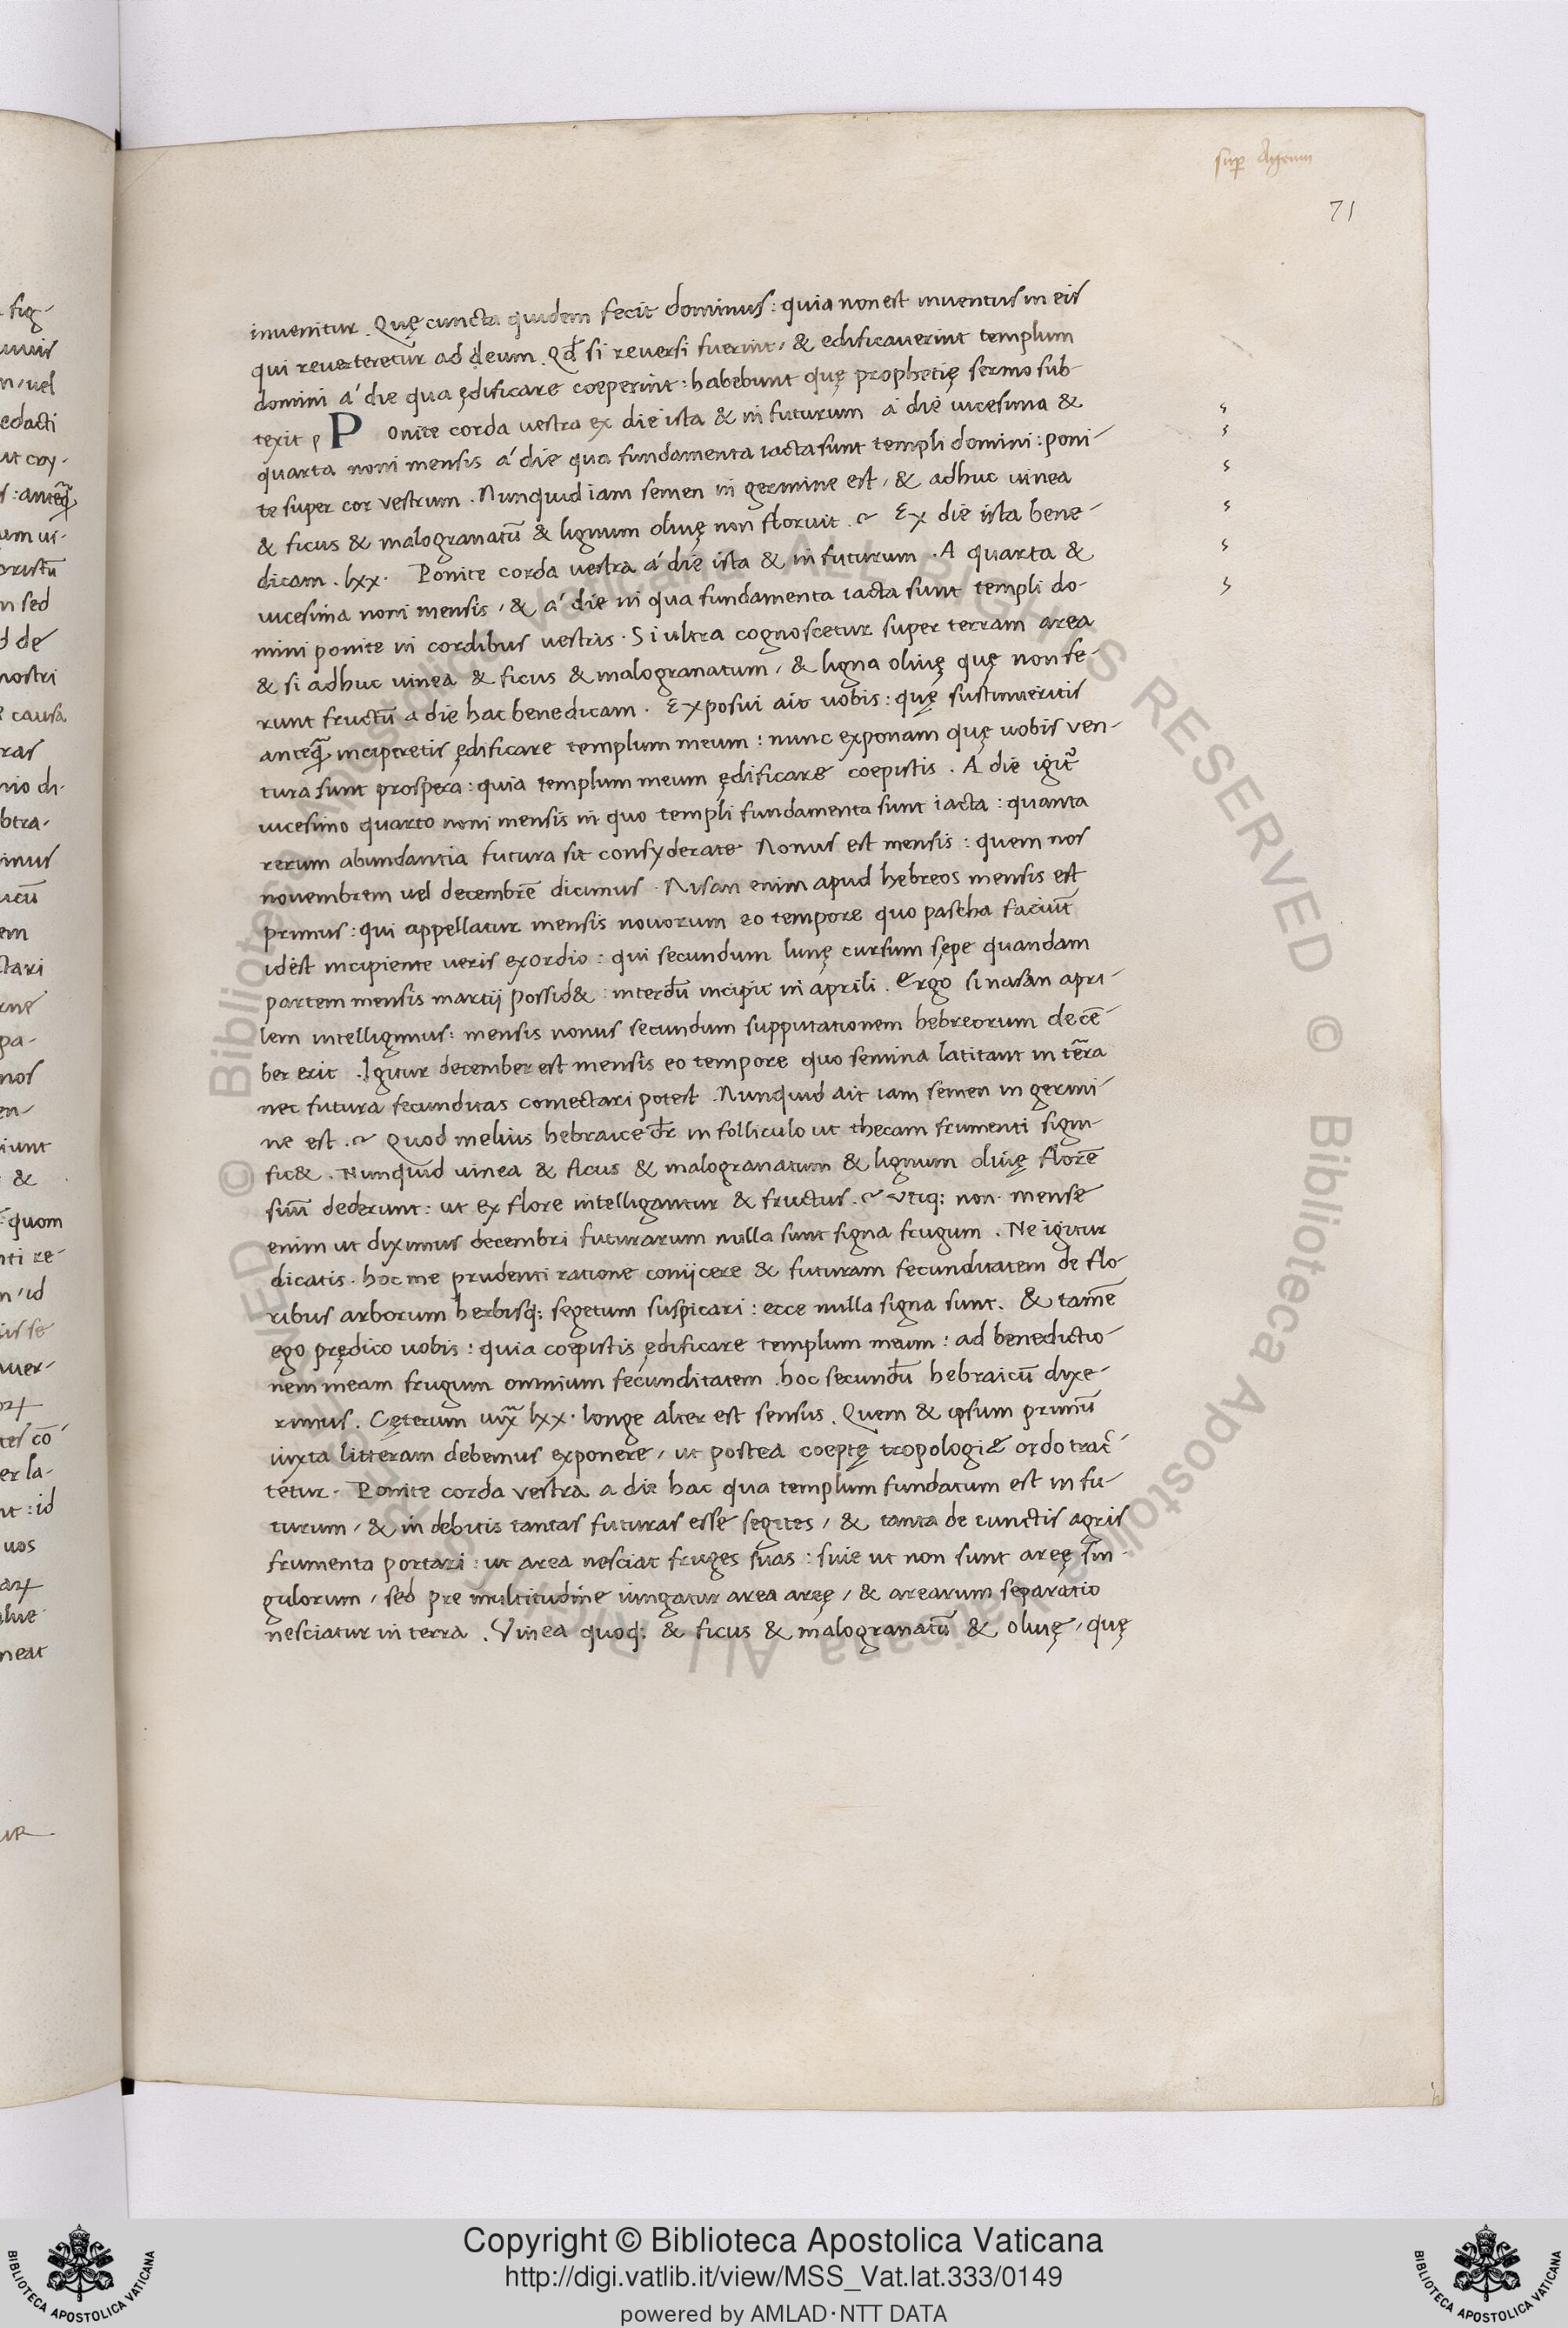 sup Ageum
71
invenitur . Quę cuncta quidem fecit dominus : quia non est inventus in eis
qui reverteretur ad deum . Qđ si reversi fuerint / & edificaverint templum
domini á die qua ędificare coeperint : habebunt quę prophetię sermo sub-
texit P onite corda vestra ex die ista & in futurum á die vicesima &
quarta noni mensis á die qua fundamenta iacta sunt templi domini : poni-
te super cor vestrum . Nunquid iam semen in germine est / & adhuc vinea
& ficus & malogranatū & lignum olivę non floruit . Ex die ista bene-
dicam . lxx . Ponite corda vestra á die ista & in futurum . A quarta &
vicesima noni mensis / & á die in qua fundamenta iacta sunt templi do-
mini ponite in cordibus vestris . Si ultra cognoscetur super terram area
& si adhuc vinea & ficus & malogranatum / & ligna olivę quę non fe-
runt fructū a die hac benedicam . Exposui ait vobis : quę sustinueritis
anteq̃ inciperetis ędificare templum meum : nunc exponam quę vobis ven-
tura sunt prospera : quia templum meum ędificare coepistis . A die igit᷑
vicesimo quarto noni mensis in quo templi fundamenta sunt iacta : quanta
rerum abundantia futura sit consyderate Nonus est mensis : quem nos
novembrem vel decembrē dicimus . Nisan enim apud hebreos mensis est
primus : qui appellatur mensis novorum eo tempore quo pascha faciūt
idēst incipiente veris exordio : qui secundum lunę cursum sępe quandam
partem mensis martij possid& : interdū incipit in aprili . Ergo si nasan apri-
lem intelligimus : mensis nonus secundum supputationem hebreorum decē-
ber erit . Igitur december est mensis eo tempore quo semina latitant in tēra
nec futura fecunditas coniectari potest . Nunquid ait iam semen in germi-
ne est . Quod melius hebraice dr̄ in folliculo ut thecam frumenti signi-
fic& . Nunquid vinea & ficus & malogranatum & lignum olivę florē
suū dederunt : ut ex flore intelligantur & fructus . utiq; non mense
enim ut diximus decembri futurarum nulla sunt signa frugum . Ne igitur
dicatis . hoc me prudenti ratione conijcere & futuram fecunditatem de flo-
ribus arborum herbisq; segetum suspicari : ecce nulla signa sunt . & tamē
ego prędico vobis : quia coepistis ędificare templum meum : ad benedictio-
nem meam frugum omnium fecunditatem . hoc secundū hebraicū dixe-
rimus . Cęterum iux̃ lxx . longe alter est sensus . Quem & ipsum primū
iuxta litteram debemus exponere / ut postea coeptę tropologię ordo trac-
tetur . Ponite corda vestra a die hac qua templum fundatum est in fu-
turum / & in debitis tantas futuras esse segetes / & tanta de cunctis agris
frumenta portari : ut area nesciat fruges suas : sive ut non sunt aręę sin-
gulorum / sed pre multitudine iungatur area aręę / & arearum separatio
nesciatur in terra . Vinea quoq; & ficus & malogranatū & olivę / quę
Copyright © Biblioteca Apostolica Vaticana
http://digi.vatlib.it/view/MSS_Vat.lat.333/0149
powered by AMLAD·NTT DATA